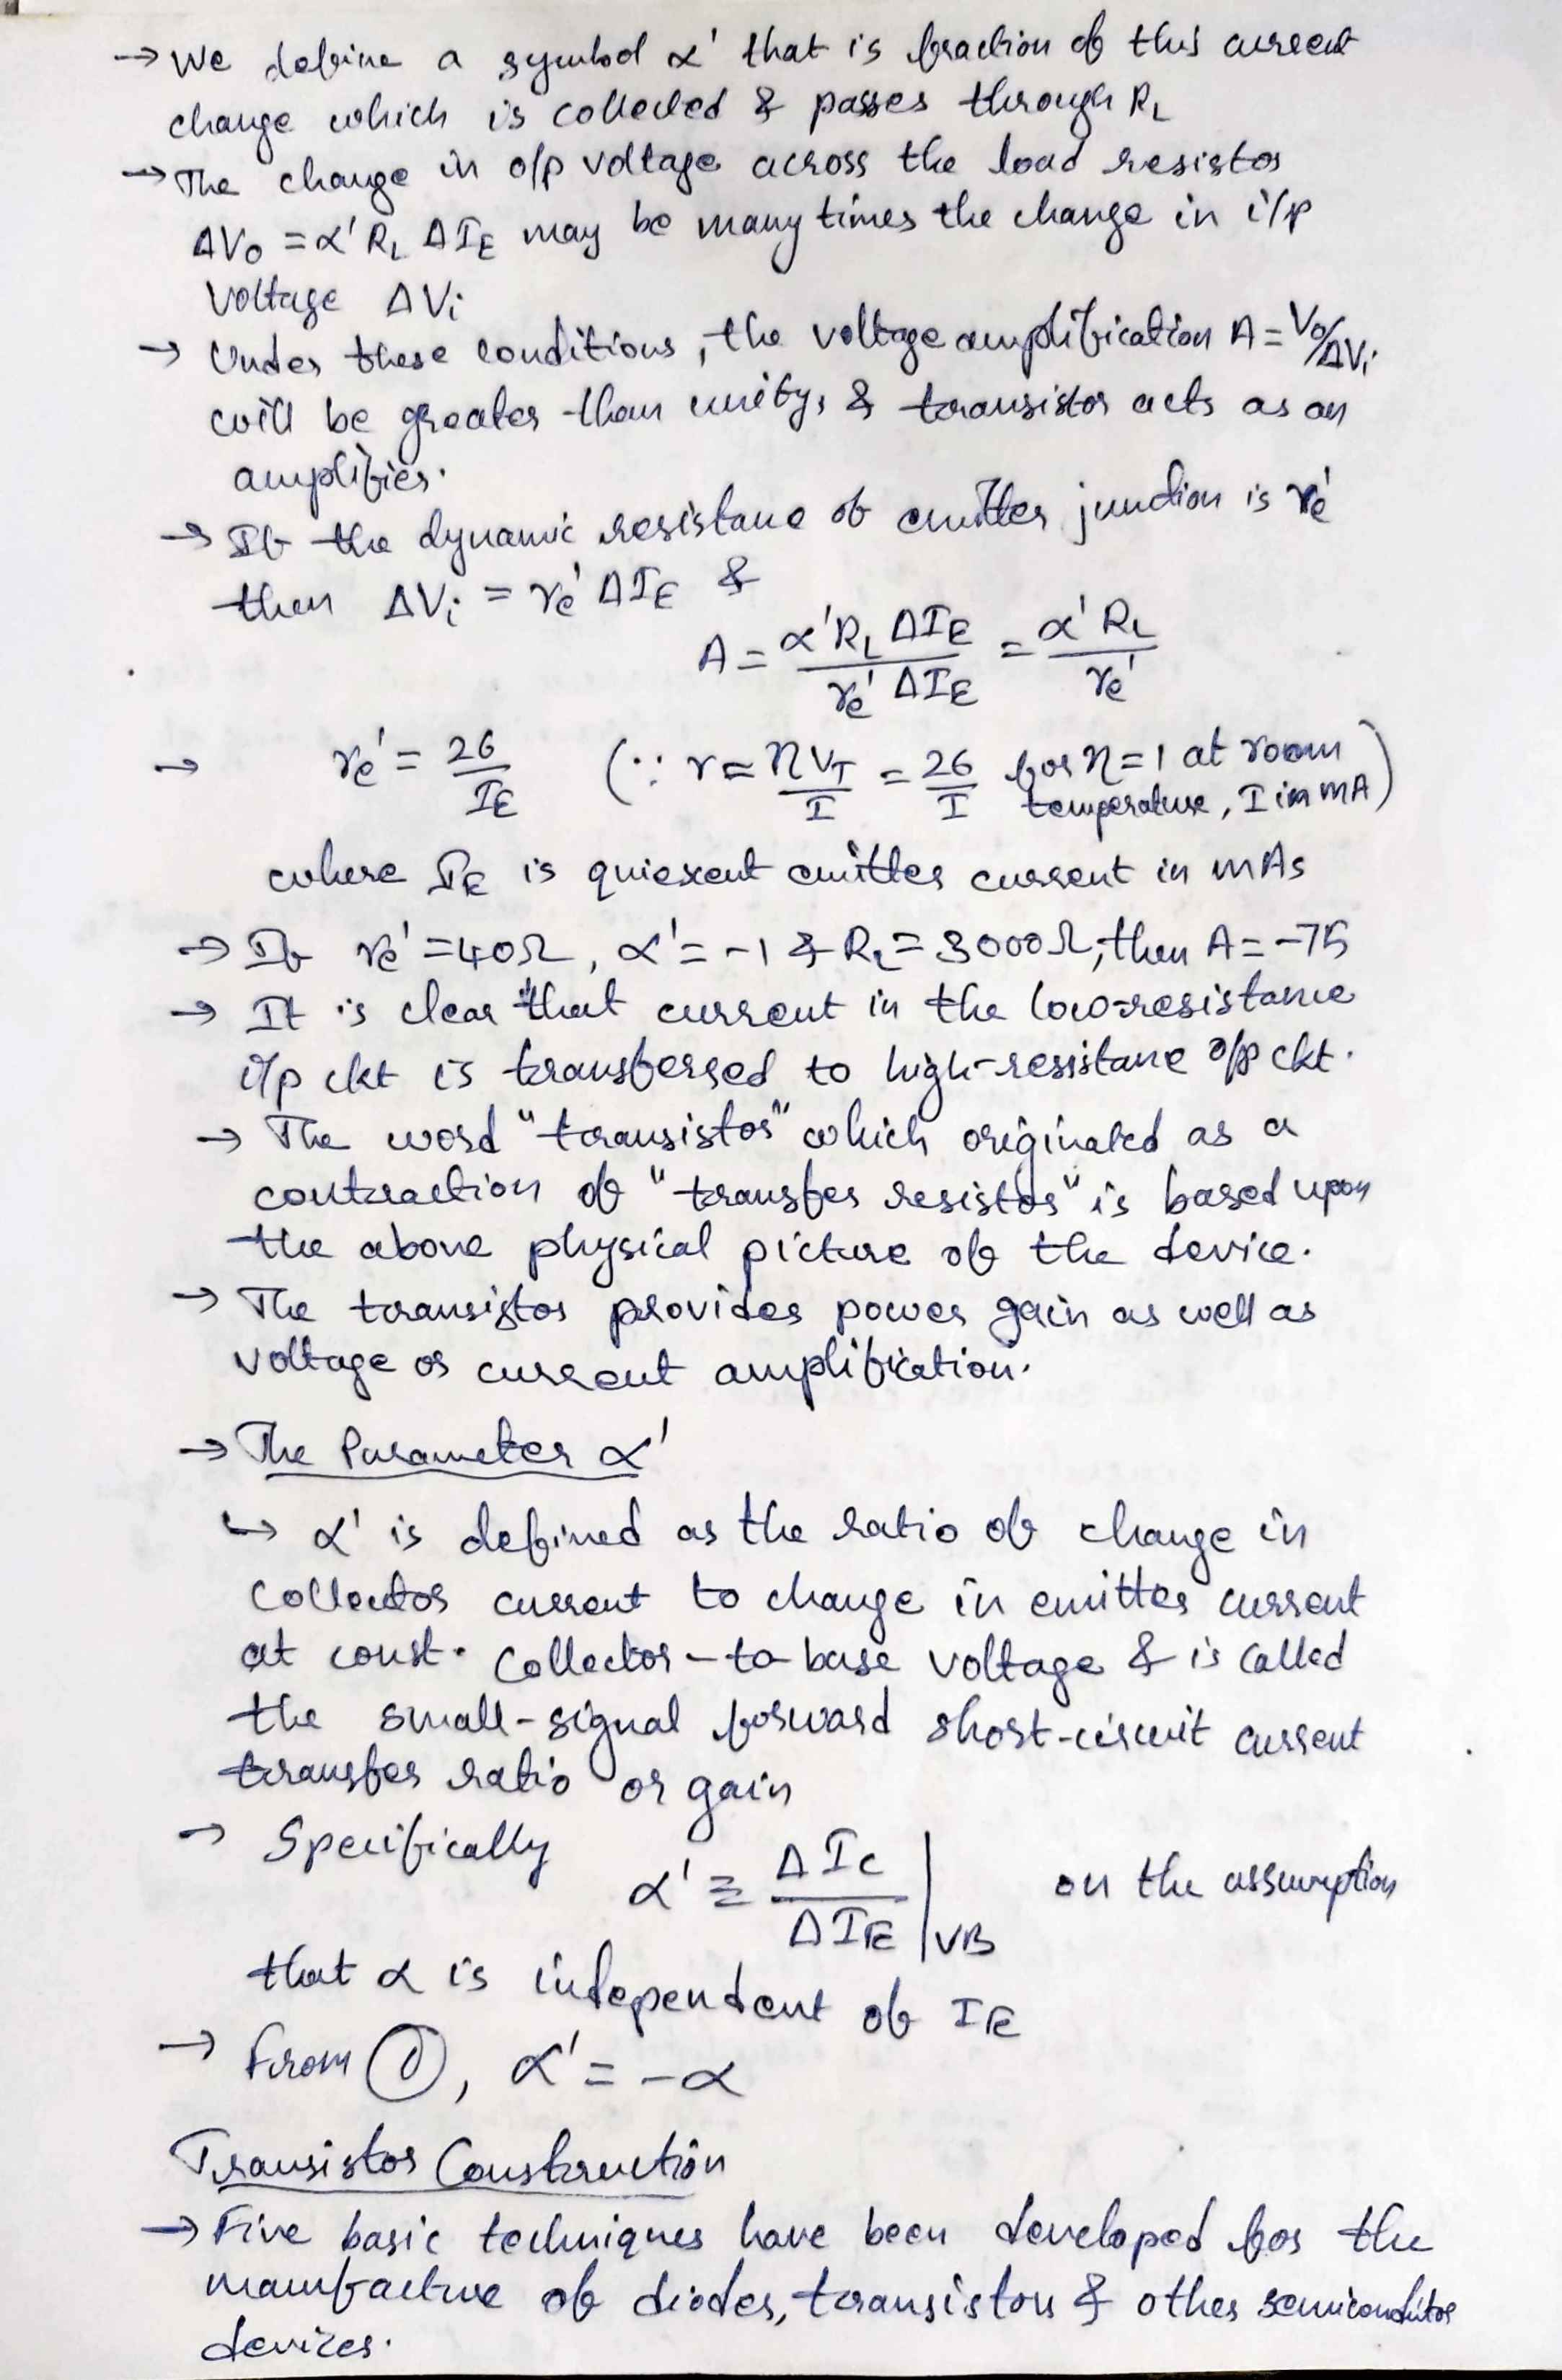 → We define a symbol α' that is fraction of this current
change which is collected & passes through R_L
→ The change in o/p voltage across the load resistor
ΔV₀ = α' R_L ΔI_E may be many times the change in i/p
voltage ΔVᵢ
→ Under these conditions, the voltage amplification A = V₀/ΔVᵢ
will be greater than unity, & transistor acts as an
amplifier.
→ If the dynamic resistance of emitter junction is rₑ'
then ΔVᵢ = rₑ' ΔI_E &
A = α' R_L ΔI_E / rₑ' ΔI_E = α' R_L / rₑ'
→ rₑ' = 26 / I_E (∵ r = ηV_T / I = 26 / I for η = 1 at room
temperature, I in mA)
where I_E is quiescent emitter current in mAs
→ If rₑ' = 40Ω, α' = -1 & R_L = 3000Ω, then A = -75
→ It is clear that current in the low-resistance
i/p ckt is transferred to high-resistance o/p ckt.
→ The word "transistor" which originated as a
contraction of "transfer resistor" is based upon
the above physical picture of the device.
→ The transistor provides power gain as well as
voltage or current amplification.
→ The Parameter α'
↳ α' is defined as the ratio of change in
collector current to change in emitter current
at const. collector-to-base voltage & is called
the small-signal forward short-circuit current
transfer ratio or gain
→ Specifically
α' ≡ ΔI_C / ΔI_E |_VB on the assumption
that α is independent of I_E
→ From ①, α' = -α
Transistor Construction
→ Five basic techniques have been developed for the
manufacture of diodes, transistors & other semiconductor
devices.